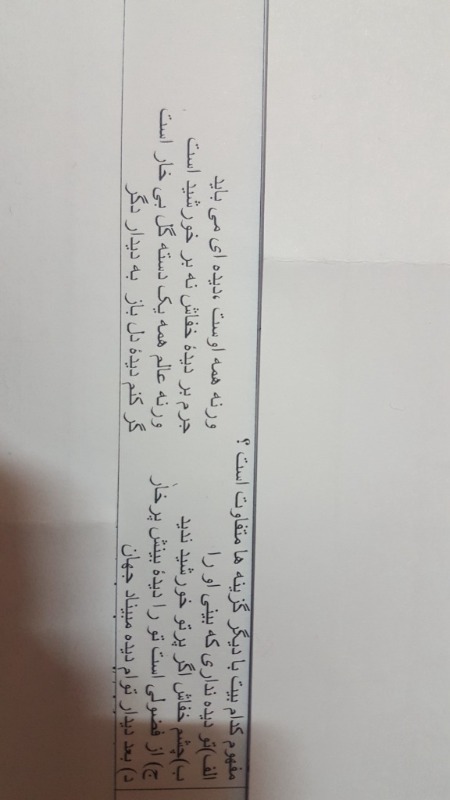 مفهوم کدام بیت با دیگر گزینه ها متفاوت است ؟
الف)تو دیده نداری که بینی او را ورنه همه اوست ،دیده ای می باید
ب)چشم خفاش اگر پرتو خورشید ندید جرم بر دیدهٔ خفاش نه بر خورشید است
ج) از فضولی است تو را دیدهٔ بینش پرخار ورنه عالم همه یک دسته گل بی خار است
د) بعد دیدار توام دیده مبیناد جهان گر کنم دیدهٔ دل باز به دیدار دگر